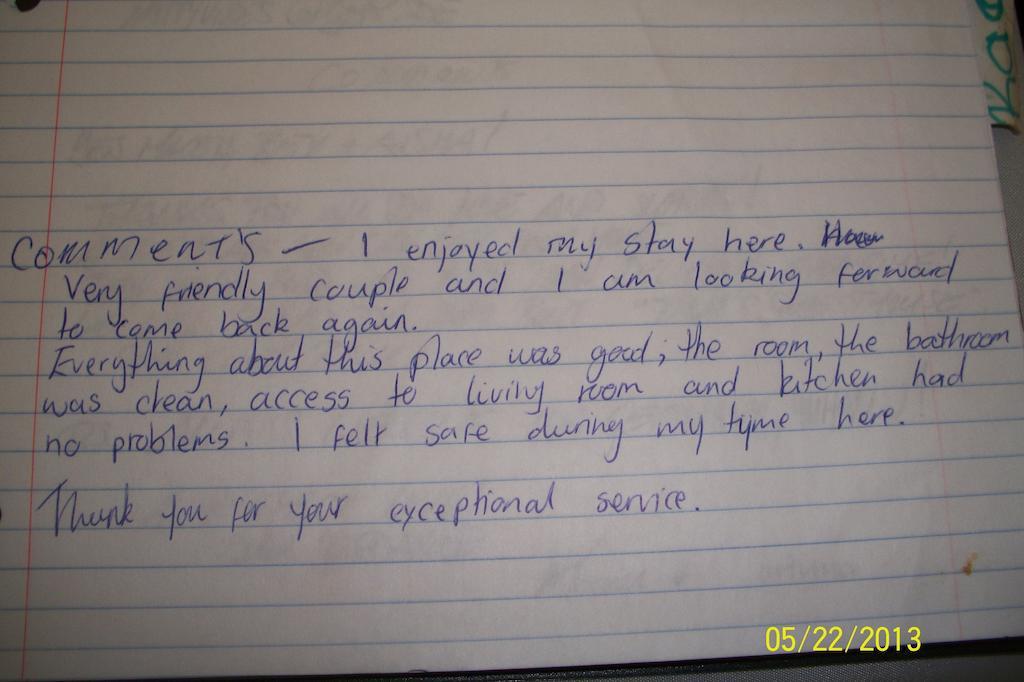 Comment's — I enjoyed my stay here.
Very friendly couple and I am looking forward
to come back again.
Everything about this place was good; the room, the bathroom
was clean, access to living room and kitchen had
no problems. I felt safe during my tyme here.
Thank you for your exceptional service.
05/22/2013